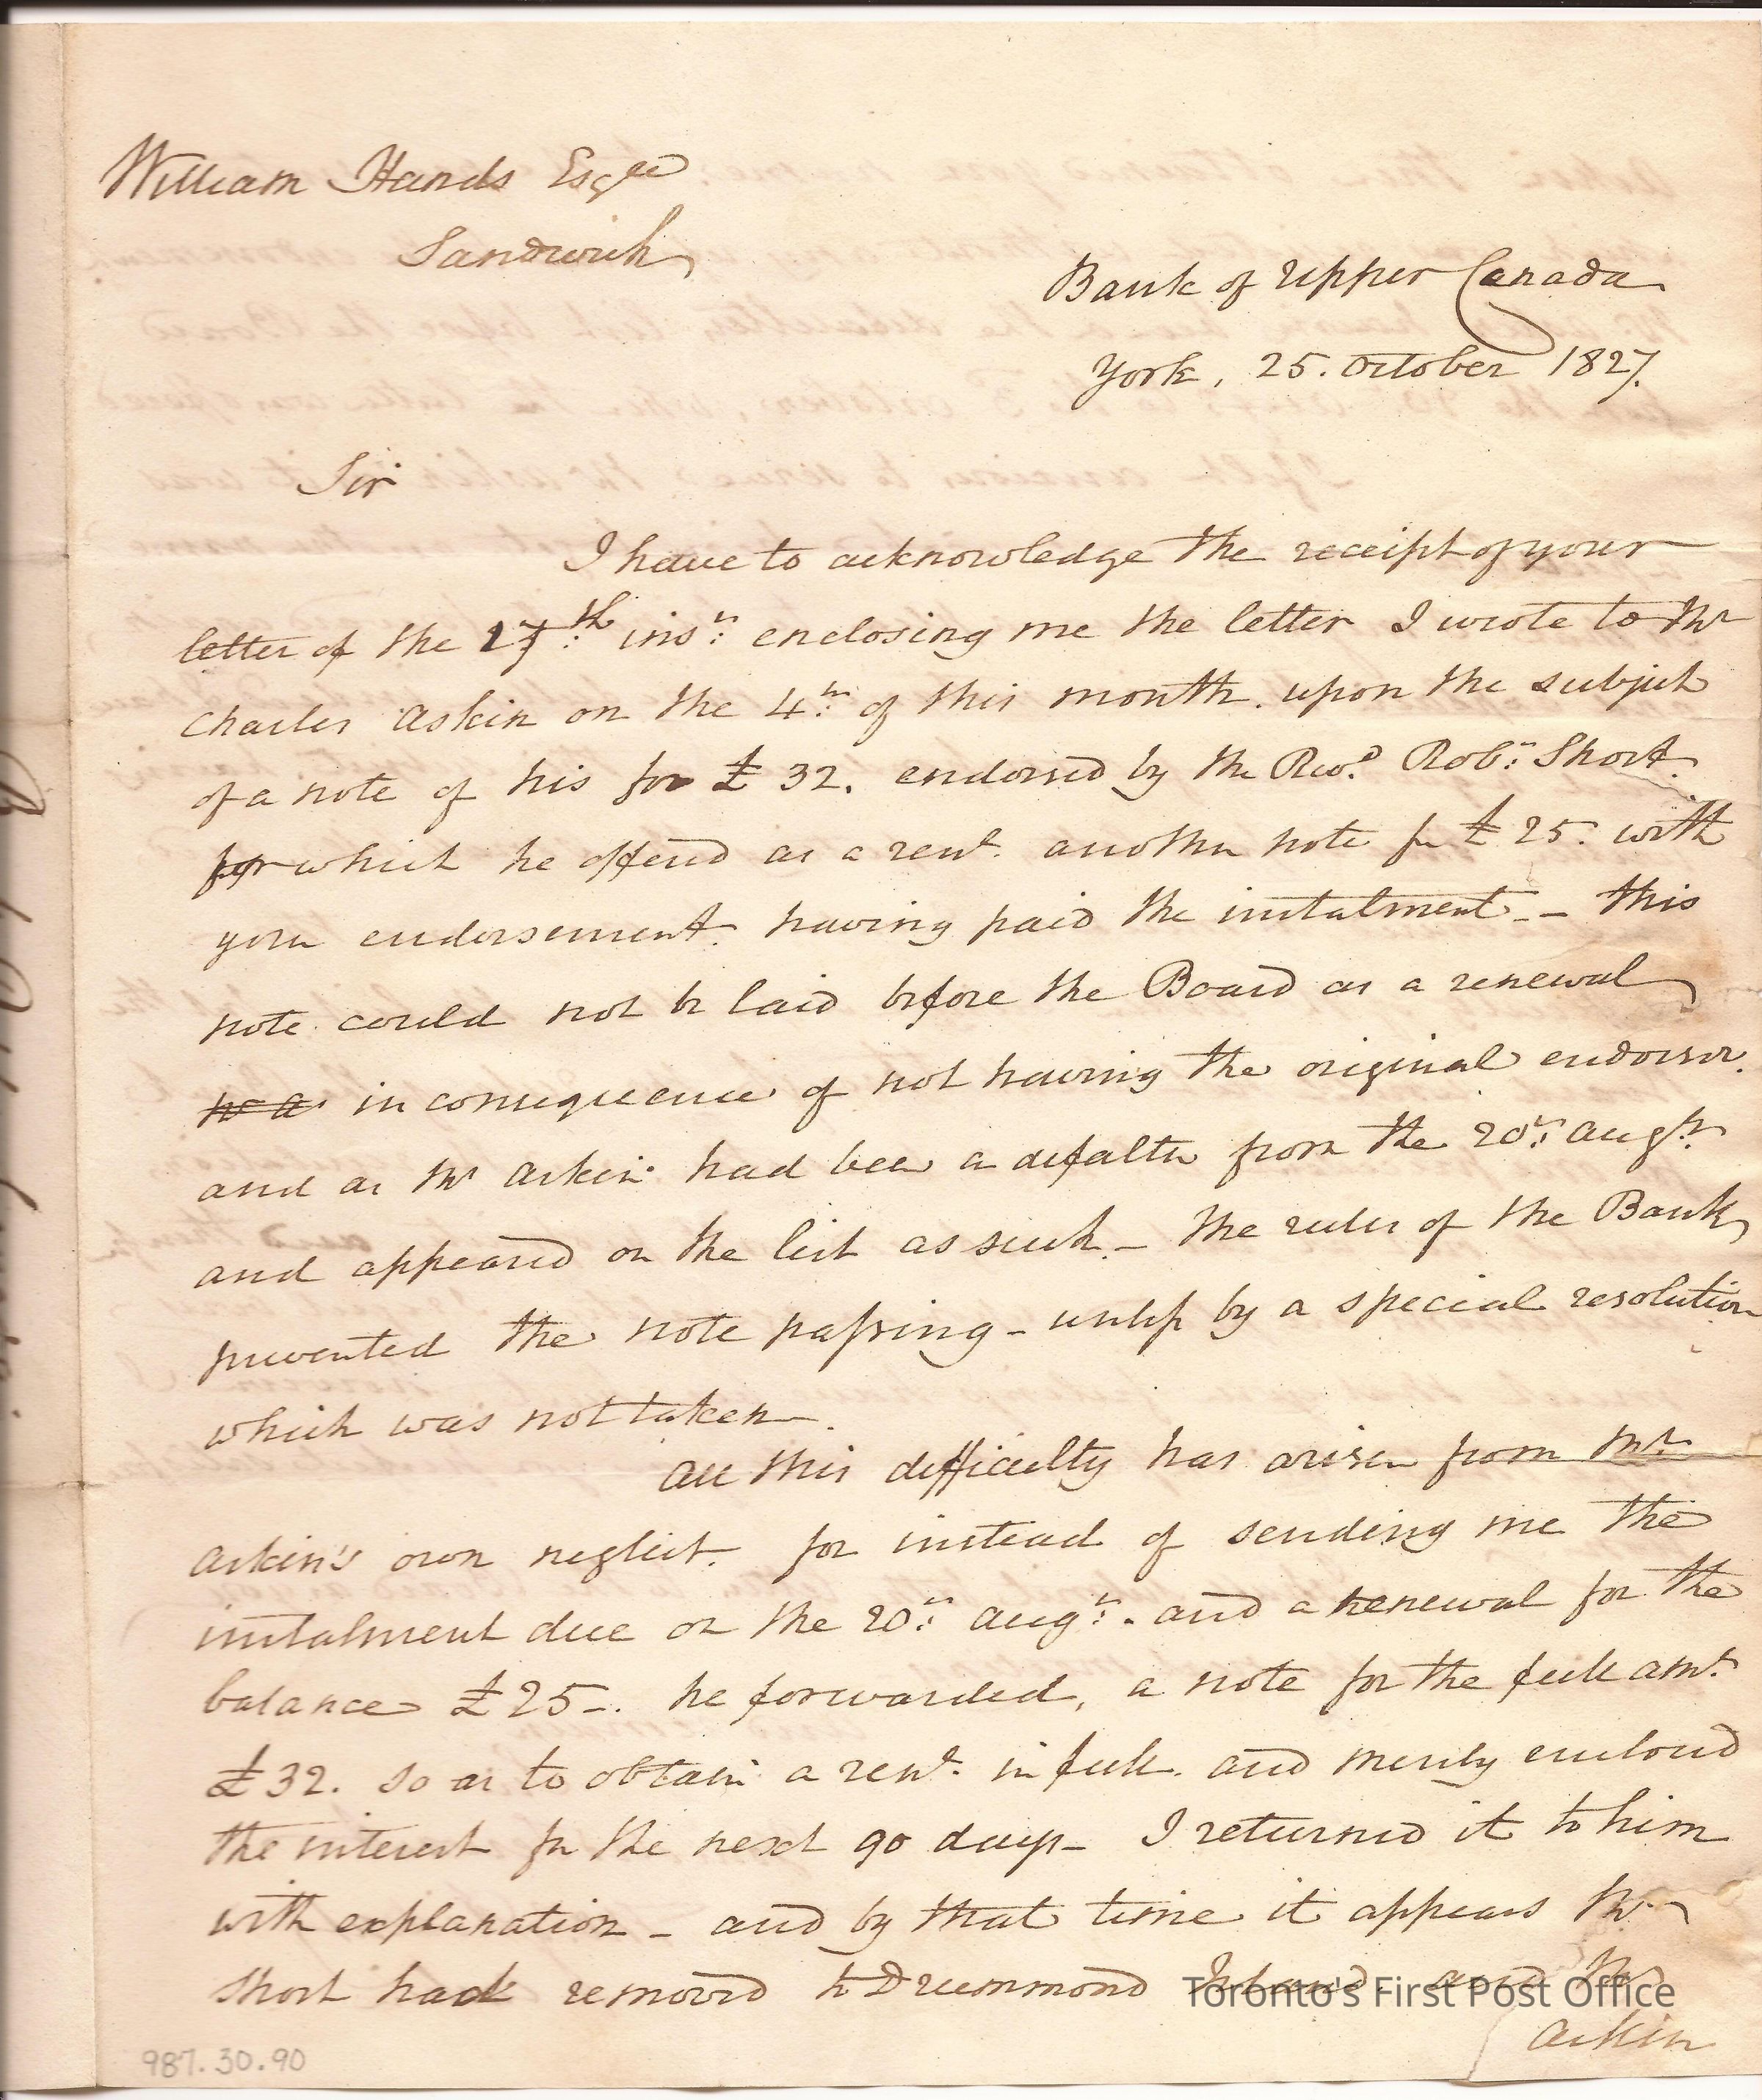 William Hands Esqre
Sandwich
Bank of Upper Canada
York, 25. October 1827.
Sir
I have to acknowledge the receipt of your
letter of the 17th inst: enclosing me the letter I wrote to Mr
Charles Askin on the 4th: of this month. upon the subject
of a note of his for £32. endorsed by the Revd. Robt: Short.
for which he offered as a renl. another note for £25. with
your endorsement. having paid the instalment -- this
note could not be laid before the Board as a renewal
in consequence of not having the original endorser.
and as Mr Askin had been a defalter from the 20th: Augt:
and appeared on the list as such. - The rules of the Bank
prevented the note passing - unless by a special resolution
which was not taken.
All this difficulty has arisen from Mr
Askin's own neglect. for instead of sending me the
instalment due on the 20th: Augt: - and a renewal for the
balance £25 -. he forwarded, a note for the full amt.
£32. so as to obtain a renl. in full. and merely enclosed
the interest for the next 90 days - I returned it to him
with explanation - and by that time it appears Mr.
Short had removed to Drummond Island. and Mr
Askin
Toronto's First Post Office
987.30.90